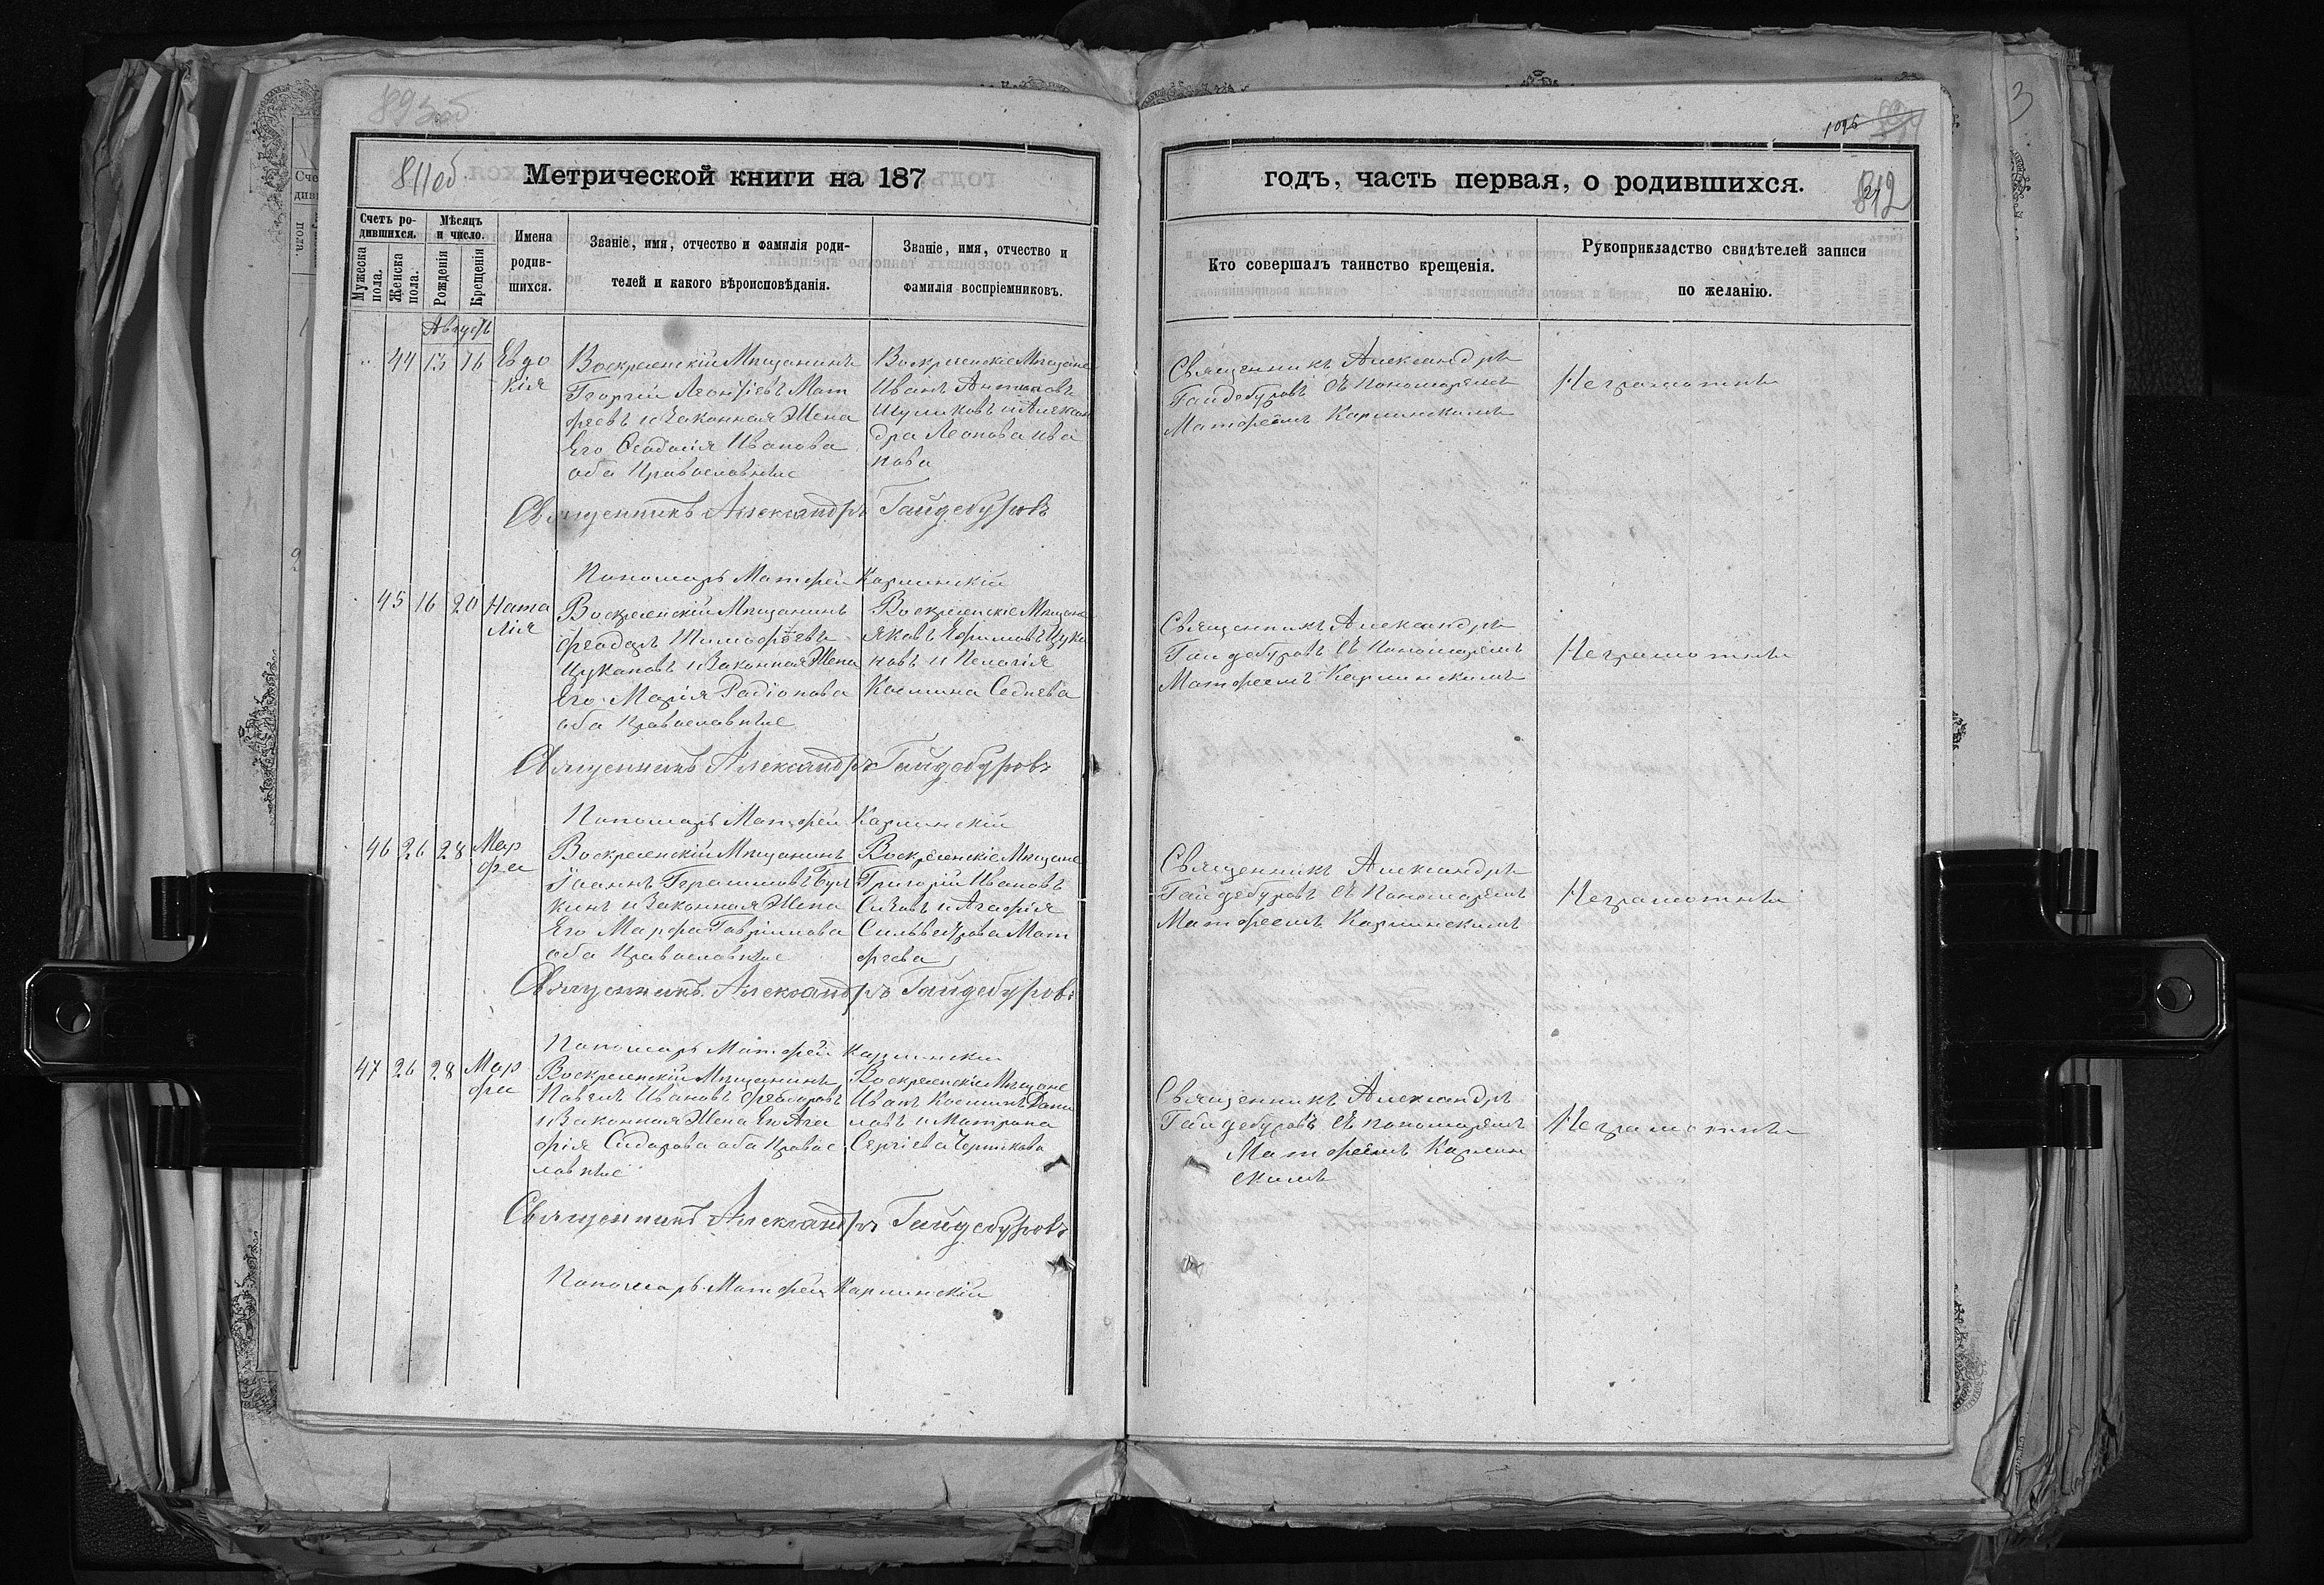 893об
811об
Метрической книги на 187
Счетъ ро-
дившихся.
Мѣсяцъ
и число.
Мужеска
пола.
Женска
пола.
Рожденія
Крещенія
Имена
родив-
шихся.
Званіе, имя, отчество и фамилія роди-
телей и какого вѣроисповѣданія.
Званіе, имя, отчество и
фамилія воспріемниковъ.
Августъ
44 13 16 Евдо
кія
Воскресенскій Мѣщанинъ
Георгій Леонтіевъ Мат
фѣевъ и Законная Жена
Его Ѳеодосія Иванова
оба Православные
Воскресенскіе Мѣщане
Иванъ Антоновъ
Шуликовъ и Алексан
дра Леонова Ива
нова
Священникъ Александръ Гайдебуровъ
Пономарь Матфей Карпинскій
45 16 20 Ната
лія
Воскресенскій Мѣщанинъ
Феодоръ Тимофѣевъ
Цукановъ и Законная Жена
Его Марія Родіонова
оба Православные
Воскресенскіе Мѣщане
Яковъ Ефимовъ Цука
новъ и Пелагія
Космина
Священникъ Александръ Гайдебуровъ
Пономарь Матфей Карпинскій
46 26 28 Мар
фа
Воскресенскій Мѣщанинъ
Іоаннъ Герасимовъ
кинъ и Законная Жена
Его Марфа Гавріилова
оба Православные
Воскресенскіе Мѣщане
Григорій Ивановъ
и Агафія
Сильвестрова Мат
фѣева
Священникъ Александръ Гайдебуровъ
Пономарь Матфей Карпинскій
47 26 28 Мар
фа
Воскресенскій Мѣщанинъ
Павелъ Ивановъ Феодоровъ
и Законная Жена Его Ага
фія Сидорова оба Правос
лавные
Воскресенскіе Мѣщане
Иванъ Косминъ Дани
ловъ и Матрона
Сергіева Чернікова
Священникъ Александръ Гайдебуровъ
Пономарь Матфей Карпинскій
1096
812
годъ, часть первая, о родившихся.
Кто совершалъ таинство крещенія.
Рукоприкладство свидѣтелей записи
по желанію.
Священникъ Александръ
Гайдебуровъ съ Пономаремъ
Матфеемъ Карпинскимъ
Неграмотны
Священникъ Александръ
Гайдебуровъ съ Пономаремъ
Матфеемъ Карпинскимъ
Неграмотны
Священникъ Александръ
Гайдебуровъ съ Пономаремъ
Матфеемъ Карпинскимъ
Неграмотны
Священникъ Александръ
Гайдебуровъ съ пономаремъ
Матфеемъ Карпин
скимъ
Неграмотны